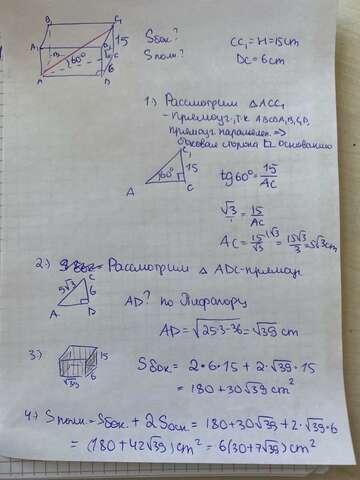 B₁ C₁
A₁ B₁ 15
60° C
6
A D
Sбок? CC₁ = H = 15 cm
Sполн.? DC = 6 cm
1.) Рассмотрим △ACC₁
- Прямоуг., т.к. ABCDA₁B₁C₁D₁
прямоуг. параллелеп. ⇒
боковая сторона ⊥ основанию
C₁
60° 15
A C
tg60° = 15/AC
√3/1 = 15/AC
AC = 15/√3 = 15√3/3 = 5√3 cm
2.) Рассмотрим △ ADC - прямоуг
C
5√3 6
A D
AD? по Пифагору
AD = √25·3-36 = √39 cm
3.) 15
√39 6
Sбок. = 2·6·15 + 2·√39·15
= 180 + 30√39 cm²
4.) Sполн. = Sбок. + 2Sосн. = 180 + 30√39 + 2·√39·6
= (180 + 42√39) cm² = 6(30 + 7√39) cm²